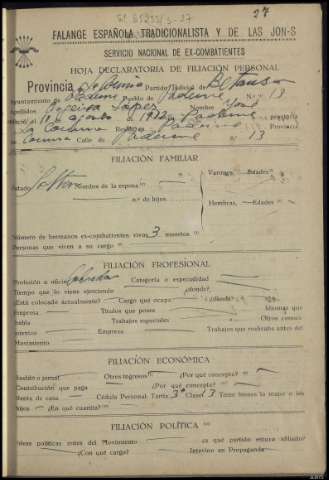 37
FALANGE ESPAÑOLA TRADICIONALISTA Y DE LAS JON-S
SERVICIO NACIONAL DE EX-COMBATIENTES
HOJA DECLARATORIA DE FILIACIÓN PERSONAL
Provincia La Coruña Partido Judicial de Betanzos
Ayuntamiento de Paderne Pueblo de Paderne N.º 13
Apellidos López Nombre José
Nació el 10 agosto de 1912 en Paderne provincia
La Coruña Paderne Provincia
Coruña Calle de Paderne 13
FILIACIÓN FAMILIAR
Estado Soltero Nombre de la esposa Varones Edades
n.º de hijos
Hembras Edades
Número de hermanos ex-combatientes vivos 3 muertos
Personas que viven a su cargo
FILIACIÓN PROFESIONAL
Profesión u oficio Categoría o especialidad
Tiempo que lo viene ejerciendo ¿dónde?
Está colocado actualmente? Cargo que ocupa ¿dónde? Idiomas que
Empresa Títulos que posee Otros cursos
habla Trabajos especiales Trabajos que realizaba antes del
interino Empresa
Movimiento
FILIACIÓN ECONÓMICA
Pensión o jornal Otros ingresos ¿Por qué concepto?
Contribución que paga ¿Por qué concepto?
Renta de casa Cédula Personal Tarifa 3ª Clase 3 Tiene bienes la mujer o los
hijos ¿En qué cuantía?
FILIACIÓN POLÍTICA
Ideas políticas antes del Movimiento en qué partido estuvo afiliado?
¿Con qué cargo? Intervino en Propaganda